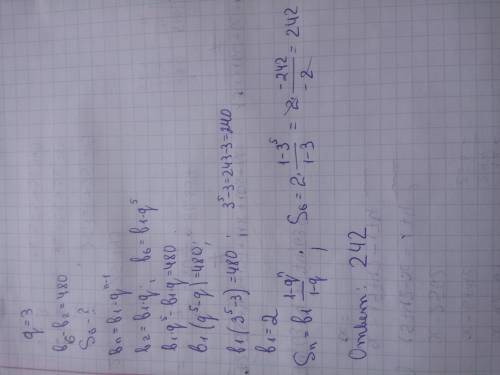 q=3
b₆-b₂=480
S₆-?
bₙ=b₁·qⁿ⁻¹
b₂=b₁·q; b₆=b₁·q⁵
b₁q⁵-b₁q=480
b₁(q⁵-q)=480;
b₁(3⁵-3)=480; 3⁵-3=243-3=240
b₁=2
Sₙ=b₁ (1-qⁿ)/(1-q), S₆=2·(1-3⁵)/(1-3)=2·(-242)/(-2)=242
Ответ: 242